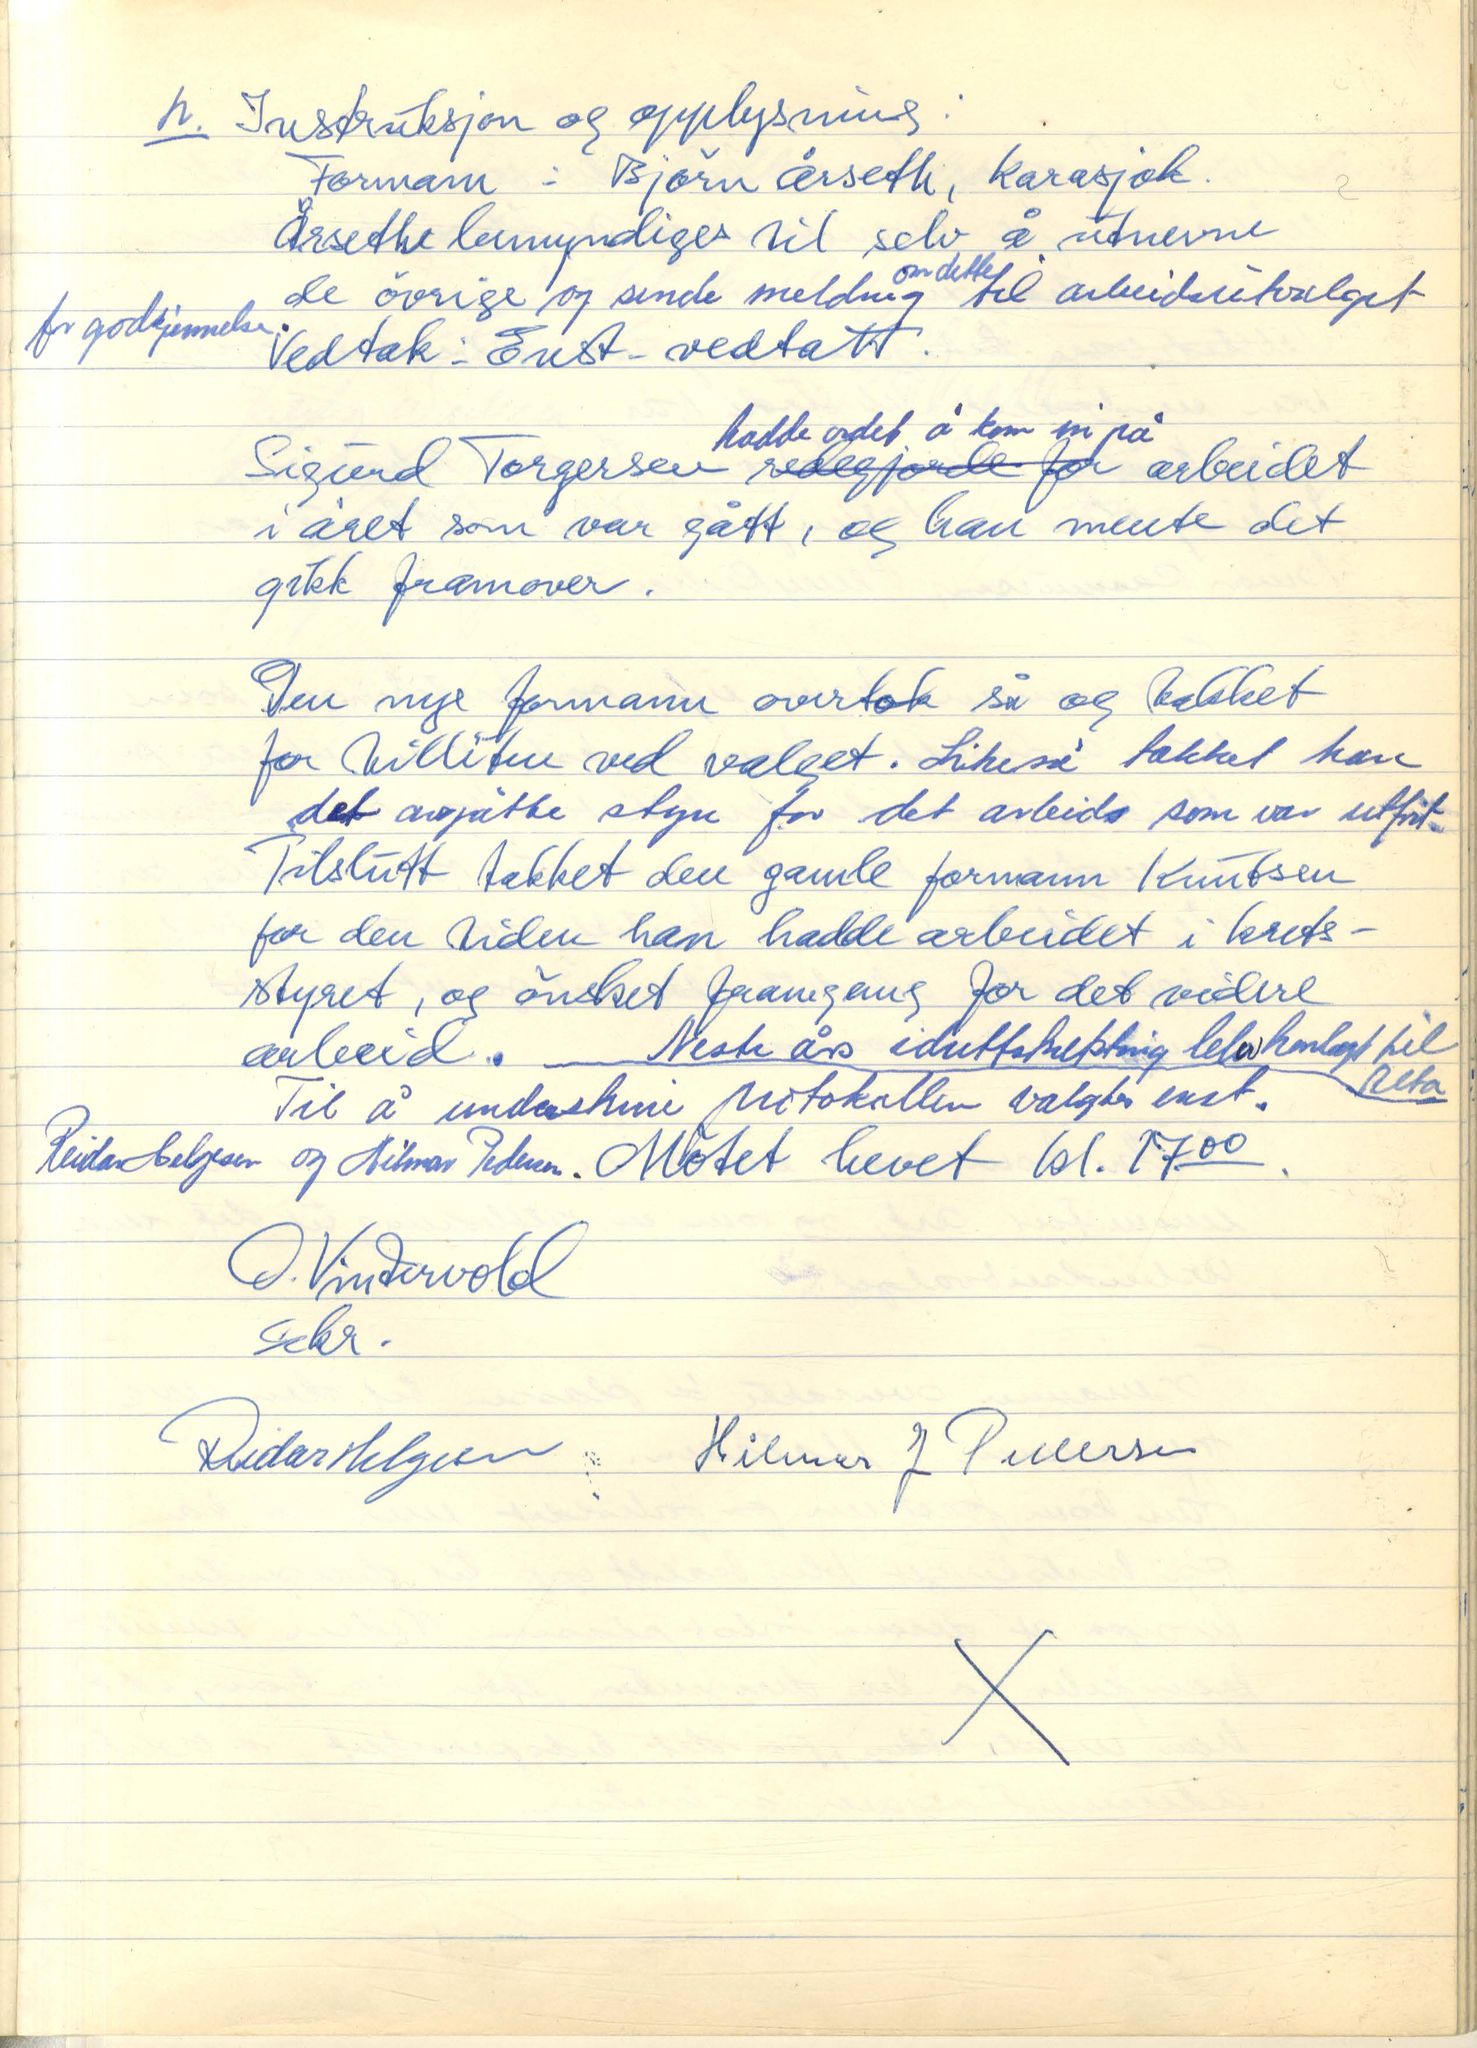 h. Instruksjon og opplysning:
Formann: Björn Årseth, Karasjok.
Årseth bemyndiges til selv å utnevne
de övrige og sende melding om dette til arbeidsutvalget
for godkjennelse.
Vedtak: Enst. vedtatt.
Sigurd Torgersen redegjorde for hadde ordet å kom inn på arbeidet
i året som var gått, og han mente det
gikk framover.
Den nye formann overtok så og takket
for tilliten ved valget. Likeså takket han
det avgåtte styre for det arbeide som var utfört.
Tilslutt takket den gamle formann Knutsen
for den tiden han hadde arbeidet i krets-
styret, og önsket framgang for det videre
arbeid. Neste års idrettskretsting ble henlagt til
Alta
Til å underskrive protokollen valgtes enst.
Reidar Helgesen og Hilmar Pedersen. Mötet hevet kl. 17.00.
O. Vintervold
sekr.
Reidar Helgesen Hilmar J Pedersen